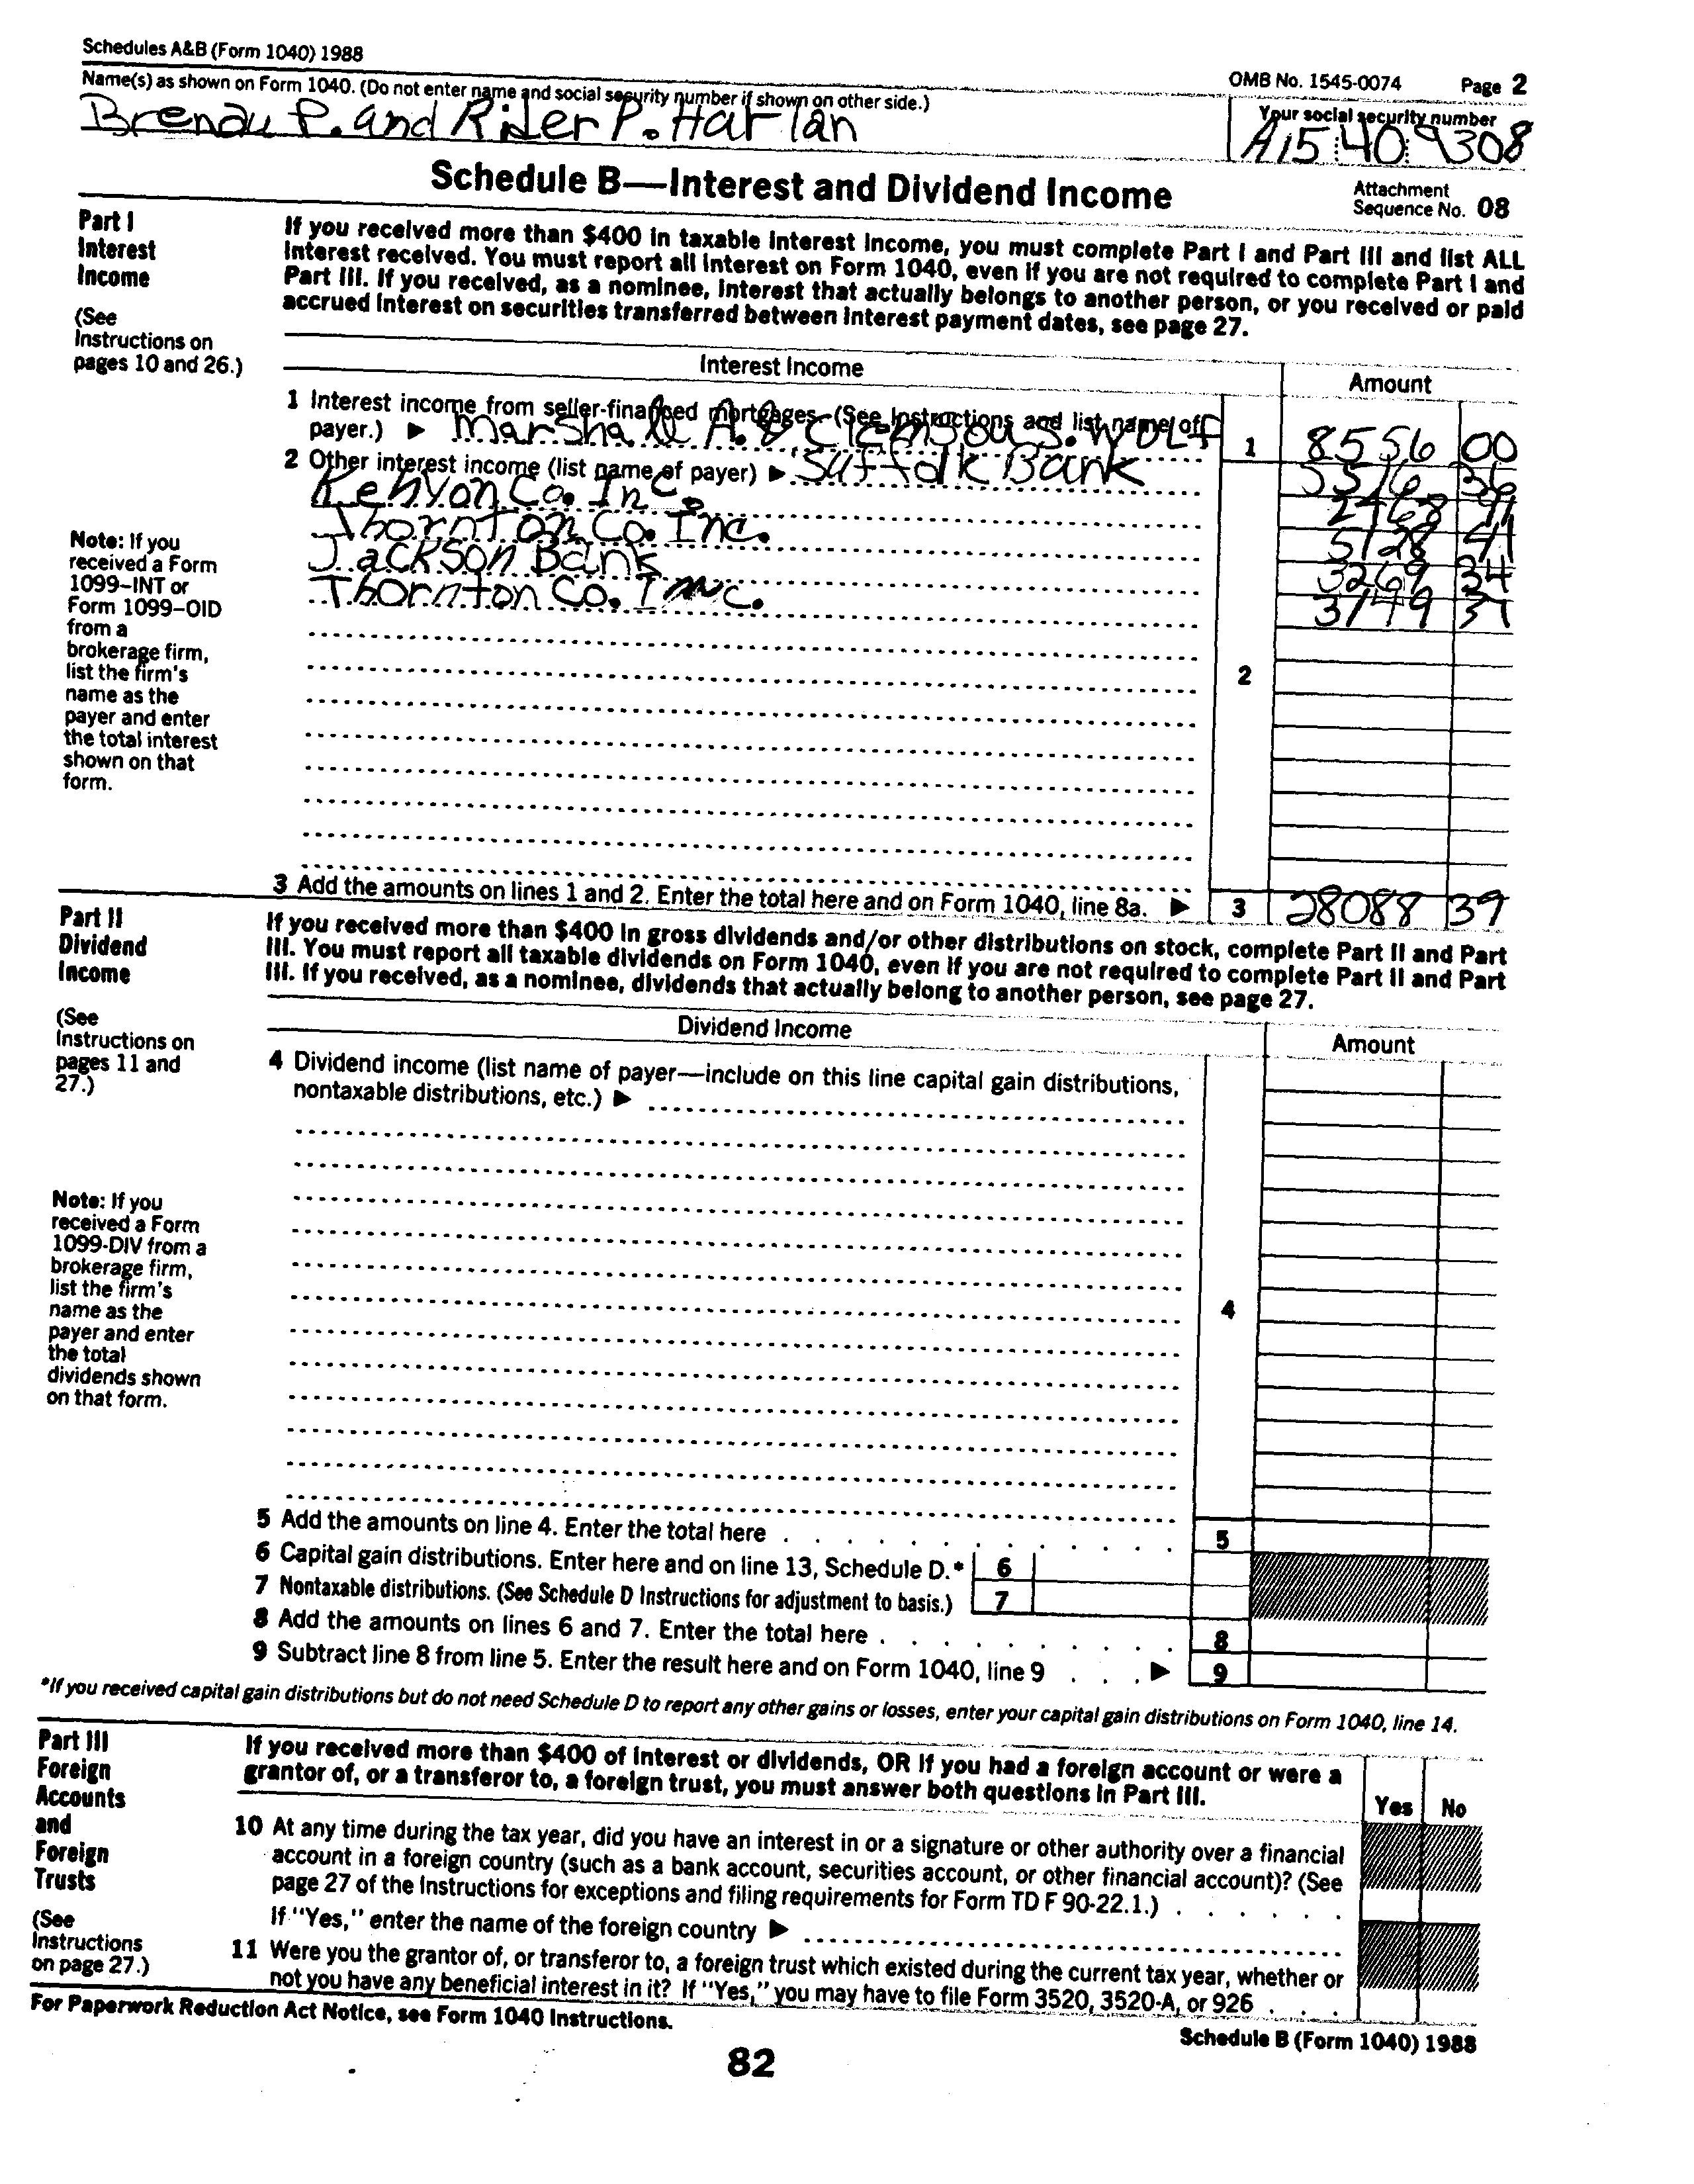 Schedules A&B (Form 1040) 1988
OMB No. 1545-0074 Page 2
Name(s) as shown on Form 1040. (Do not enter name and social security number if shown on other side.)
Your social security number
P. and Rider P. Harlan
A15 40 9308
Schedule B—Interest and Dividend Income
Attachment
Sequence No. 08
Part I
Interest
Income
(See
Instructions on
pages 10 and 26.)
If you received more than $400 in taxable interest income, you must complete Part I and Part III and list ALL
interest received. You must report all interest on Form 1040, even if you are not required to complete Part I and
Part III. If you received, as a nominee, interest that actually belongs to another person, or you received or paid
accrued interest on securities transferred between interest payment dates, see page 27.
Interest Income
Amount
1 Interest income from seller-financed mortgages (See Instructions and list name of
payer.) ▶ A. & S. Wolf 1 8556 00
2 Other interest income (list name of payer) ▶ Suffolk Bank 5516 36
Kenyon Co. Inc. 2468 91
Thornton Co. Inc. 5128 41
Jackson Bank 3269 34
Thornton Co. Inc. 3149 37
2
Note: If you
received a Form
1099–INT or
Form 1099–OID
from a
brokerage firm,
list the firm's
name as the
payer and enter
the total interest
shown on that
form.
3 Add the amounts on lines 1 and 2. Enter the total here and on Form 1040, line 8a. ▶ 3 28088 39
Part II
Dividend
Income
(See
Instructions on
pages 11 and
27.)
If you received more than $400 in gross dividends and/or other distributions on stock, complete Part II and Part
III. You must report all taxable dividends on Form 1040, even if you are not required to complete Part II and Part
III. If you received, as a nominee, dividends that actually belong to another person, see page 27.
Dividend Income
Amount
4 Dividend income (list name of payer—include on this line capital gain distributions,
nontaxable distributions, etc.) ▶
4
Note: If you
received a Form
1099-DIV from a
brokerage firm,
list the firm's
name as the
payer and enter
the total
dividends shown
on that form.
5 Add the amounts on line 4. Enter the total here 5
6 Capital gain distributions. Enter here and on line 13, Schedule D.* 6
7 Nontaxable distributions. (See Schedule D Instructions for adjustment to basis.) 7
8 Add the amounts on lines 6 and 7. Enter the total here 8
9 Subtract line 8 from line 5. Enter the result here and on Form 1040, line 9 ▶ 9
*If you received capital gain distributions but do not need Schedule D to report any other gains or losses, enter your capital gain distributions on Form 1040, line 14.
Part III
Foreign
Accounts
and
Foreign
Trusts
(See
Instructions
on page 27.)
If you received more than $400 of interest or dividends, OR if you had a foreign account or were a
grantor of, or a transferor to, a foreign trust, you must answer both questions in Part III.
Yes No
10 At any time during the tax year, did you have an interest in or a signature or other authority over a financial
account in a foreign country (such as a bank account, securities account, or other financial account)? (See
page 27 of the Instructions for exceptions and filing requirements for Form TD F 90-22.1.)
If "Yes," enter the name of the foreign country ▶
11 Were you the grantor of, or transferor to, a foreign trust which existed during the current tax year, whether or
not you have any beneficial interest in it? If "Yes," you may have to file Form 3520, 3520-A, or 926
For Paperwork Reduction Act Notice, see Form 1040 Instructions.
Schedule B (Form 1040) 1988
82